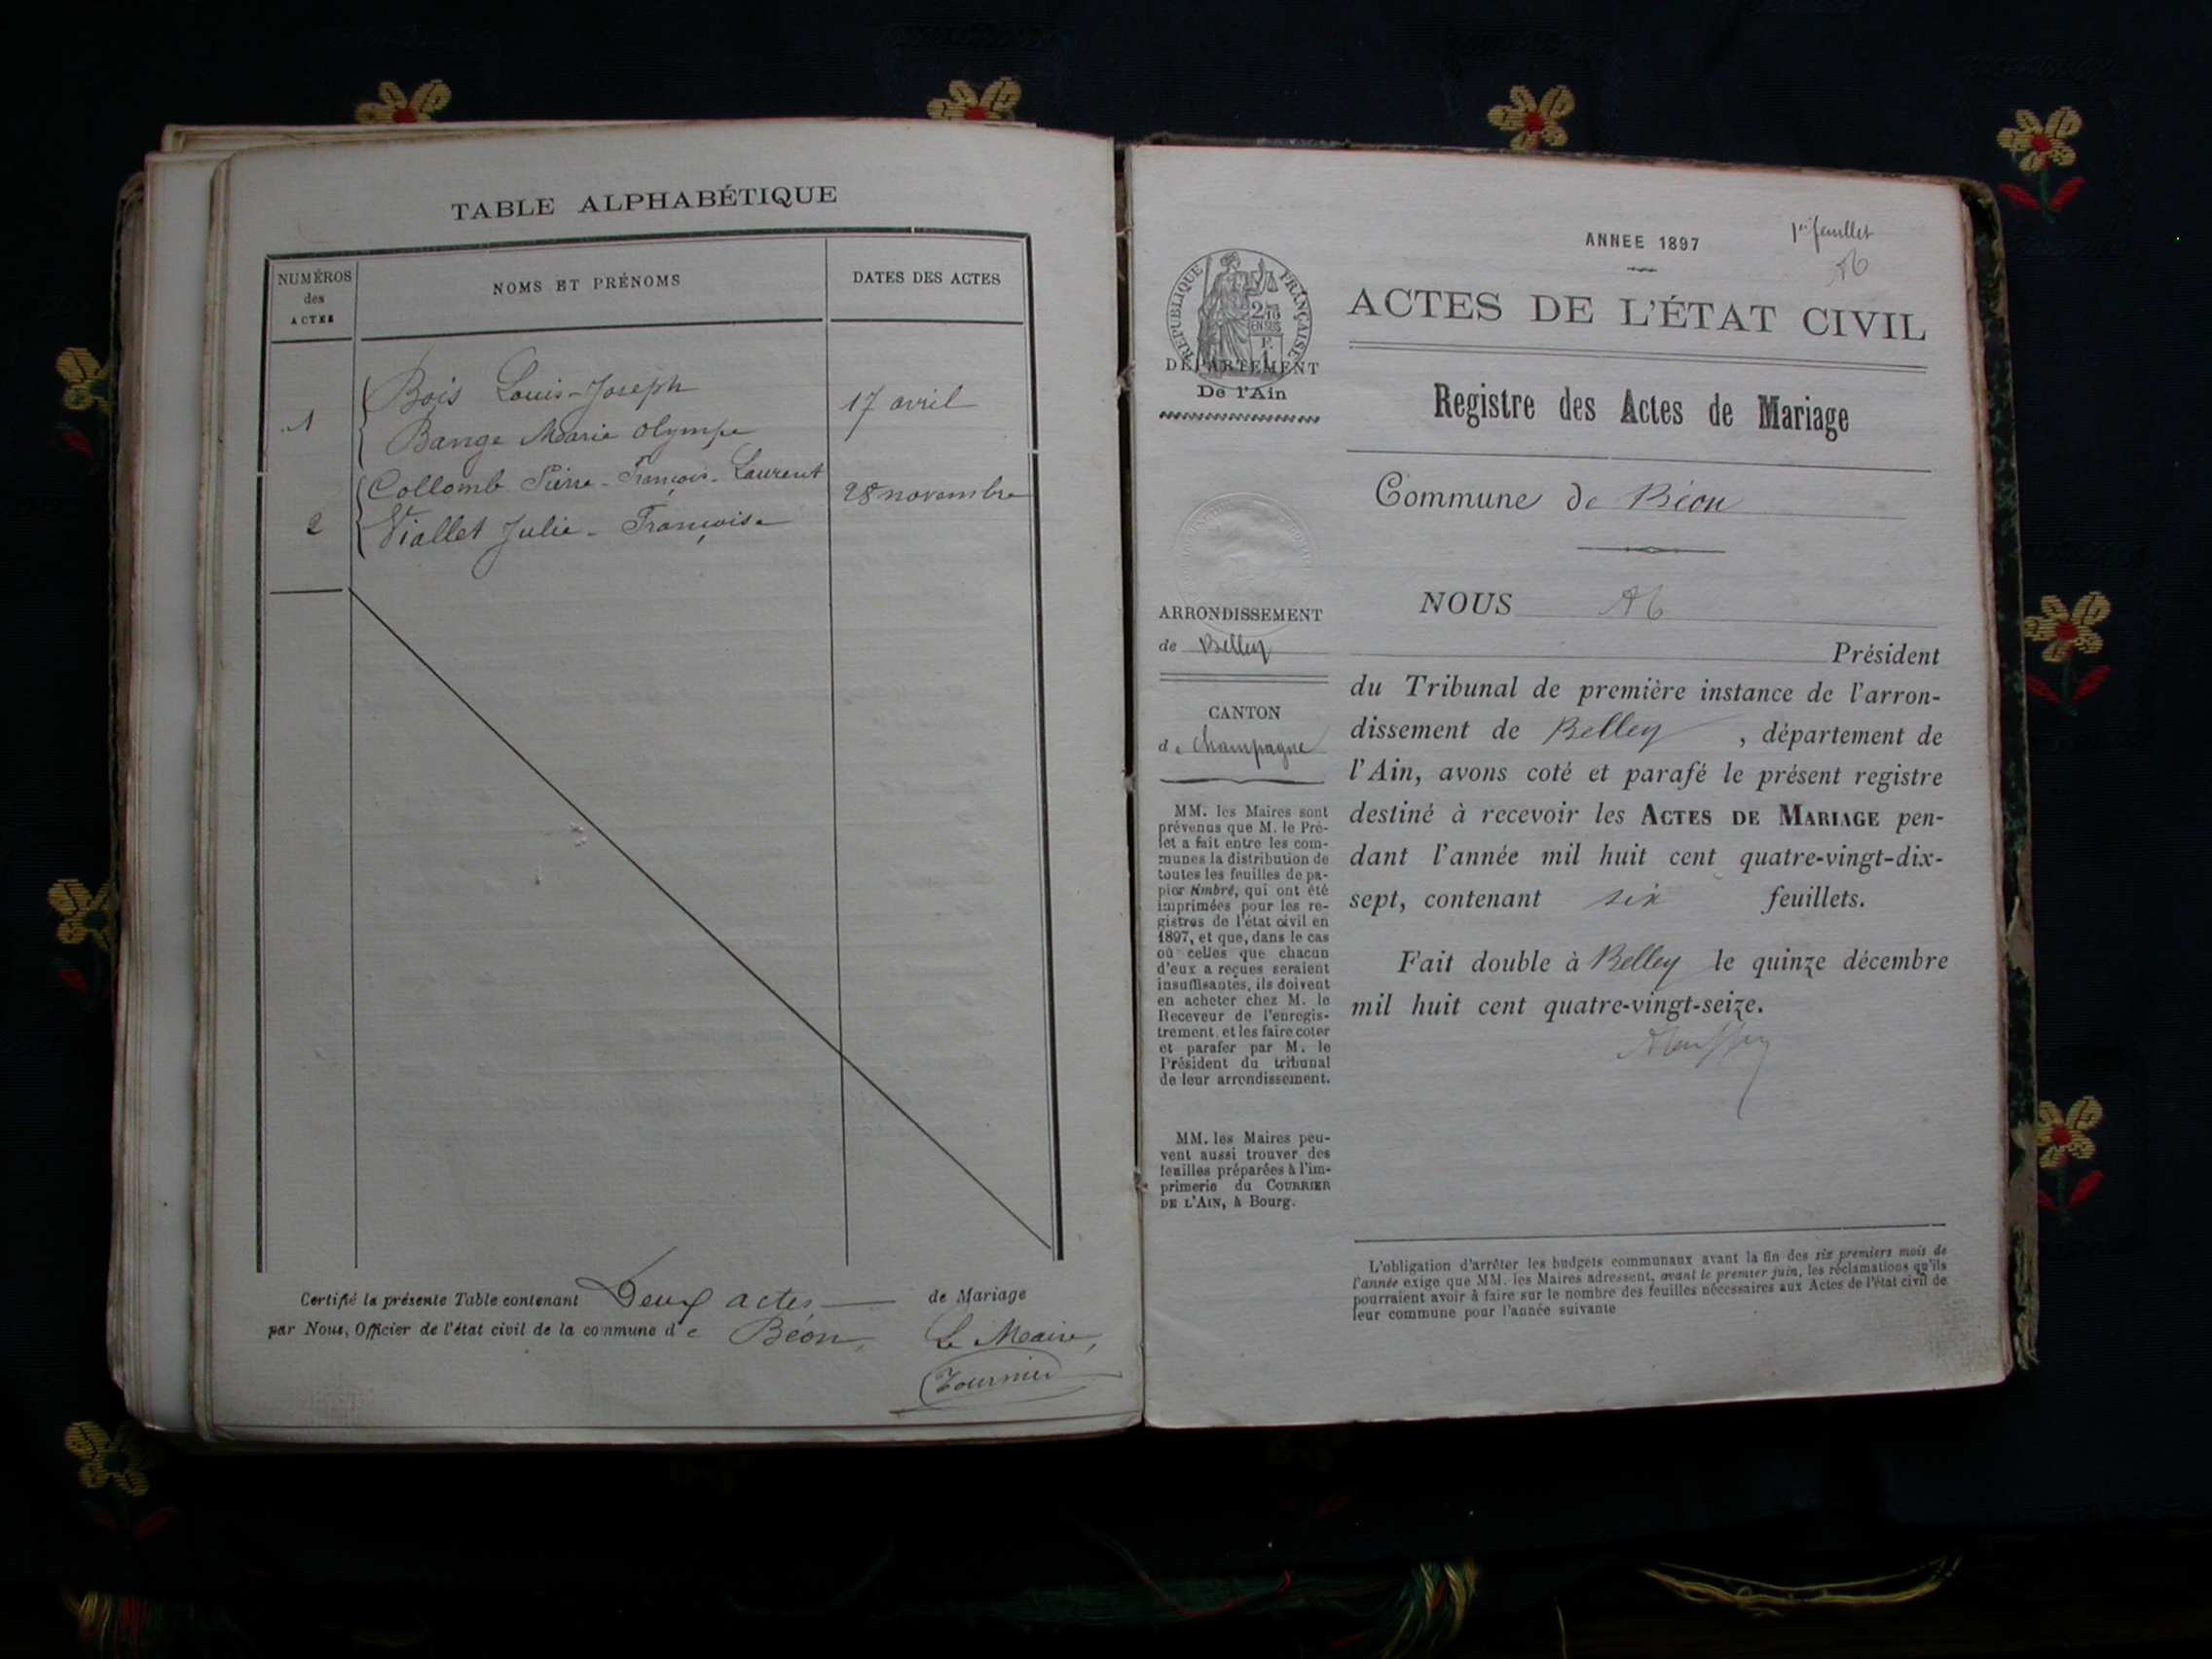 TABLE ALPHABÉTIQUE
NUMÉROS
des
ACTES
NOMS ET PRÉNOMS
DATES DES ACTES
1
Bois Louis-Joseph
Bange Marie Olympe
17 avril
2
Collomb Pierre-François-Laurent
Viallet Julie-Françoise
28 novembre
Certifié la présente Table contenant Deux actes de Mariage
par Nous, Officier de l'état civil de la commune de Béon,
Le Maire,
Tournier
ANNEE 1897
1er feuillet
RÉPUBLIQUE FRANÇAISE
2/10
EN SUS
DÉPARTEMENT
De l'Ain
ACTES DE L'ÉTAT CIVIL
Registre des Actes de Mariage
Commune de Béon
ARRONDISSEMENT
de Belley
CANTON
de Champagne
MM. les Maires sont
prévenus que M. le Pré-
fet a fait entre les com-
munes la distribution de
toutes les feuilles de pa-
pier timbré, qui ont été
imprimées pour les re-
gistres de l'état civil en
1897, et que, dans le cas
où celles que chacun
d'eux a reçues seraient
insuffisantes, ils doivent
en acheter chez M. le
Receveur de l'enregis-
trement, et les faire coter
et parafer par M. le
Président du tribunal
de leur arrondissement.
MM. les Maires peu-
vent aussi trouver des
feuilles préparées à l'im-
primerie du COURRIER
DE L'AIN, à Bourg.
NOUS
Président
du Tribunal de première instance de l'arron-
dissement de Belley, département de
l'Ain, avons coté et parafé le présent registre
destiné à recevoir les ACTES DE MARIAGE pen-
dant l'année mil huit cent quatre-vingt-dix-
sept, contenant six feuillets.
Fait double à Belley le quinze décembre
mil huit cent quatre-vingt-seize.
L'obligation d'arrêter les budgets communaux avant la fin des six premiers mois de
l'année exige que MM. les Maires adressent, avant le premier juin, les réclamations qu'ils
pourraient avoir à faire sur le nombre des feuilles nécessaires aux Actes de l'état civil de
leur commune pour l'année suivante